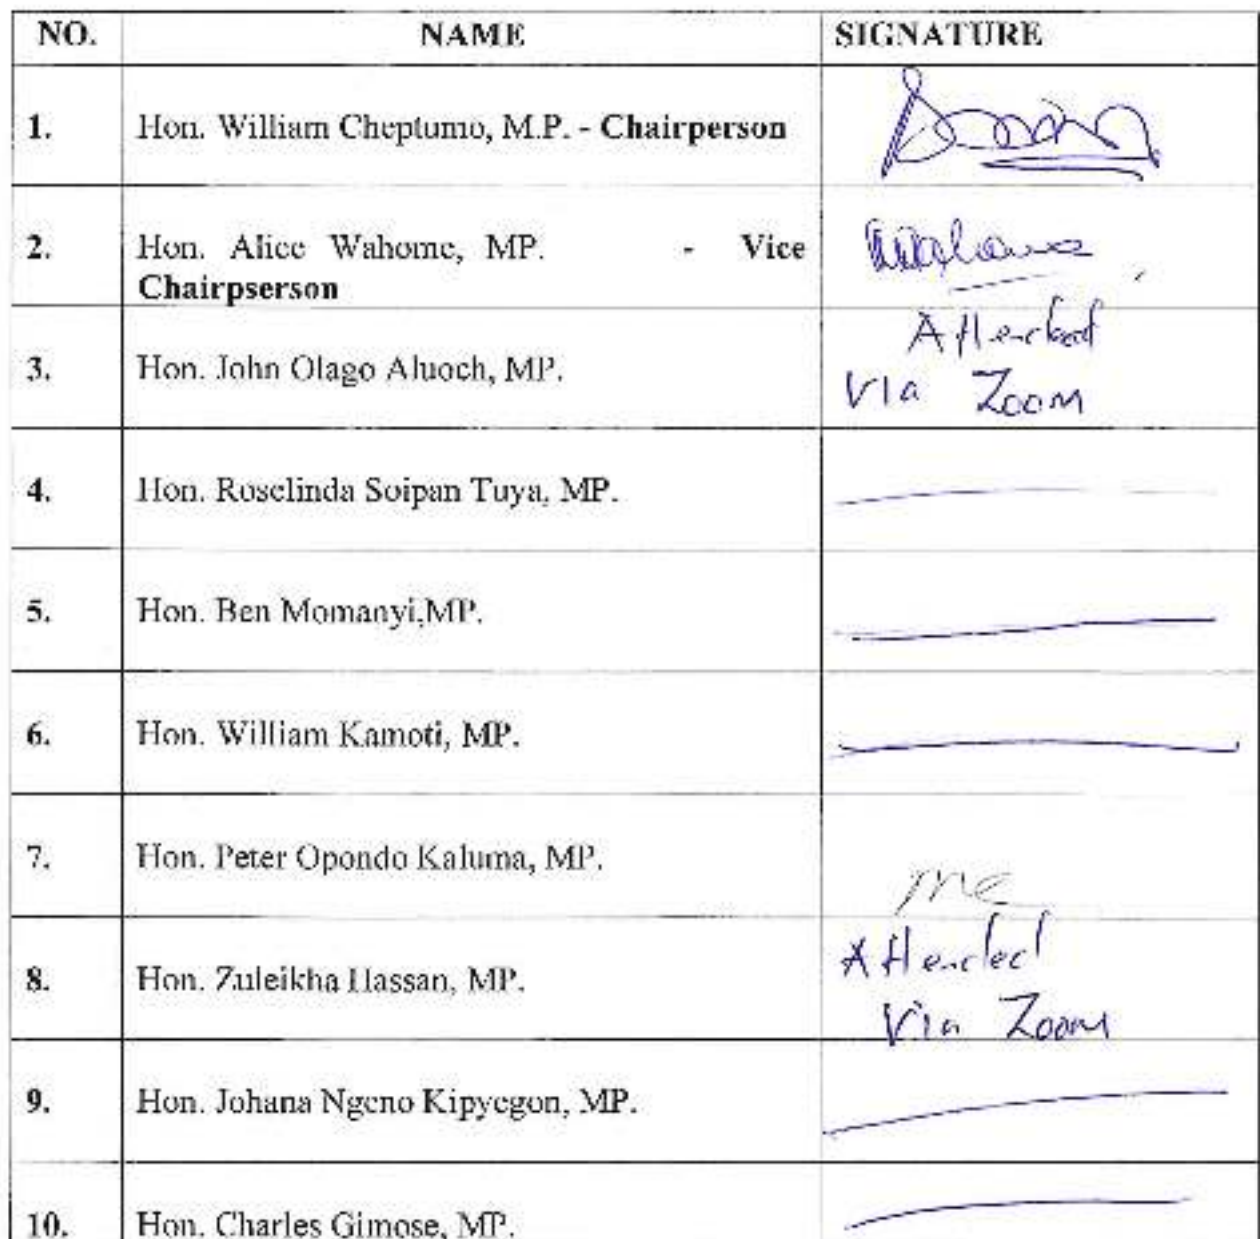 NO. NAME SIGNATURE
1. Hon. William Cheptumo, M.P. - Chairperson
2. Hon. Alice Wahome, MP. - Vice
Chairpserson
Attended
3. Hon. John Olago Aluoch, MP.
Via Zoom
4. Hon. Roselinda Soipan Tuya, MP.
5. Hon. Ben Momanyi,MP.
6. Hon. William Kamoti, MP.
7. Hon. Peter Opondo Kaluma, MP.
Attended
8. Hon. Zuleikha Hassan, MP.
Via Zoom
9. Hon. Johana Ngeno Kipyegon, MP.
10. Hon. Charles Gimose, MP.